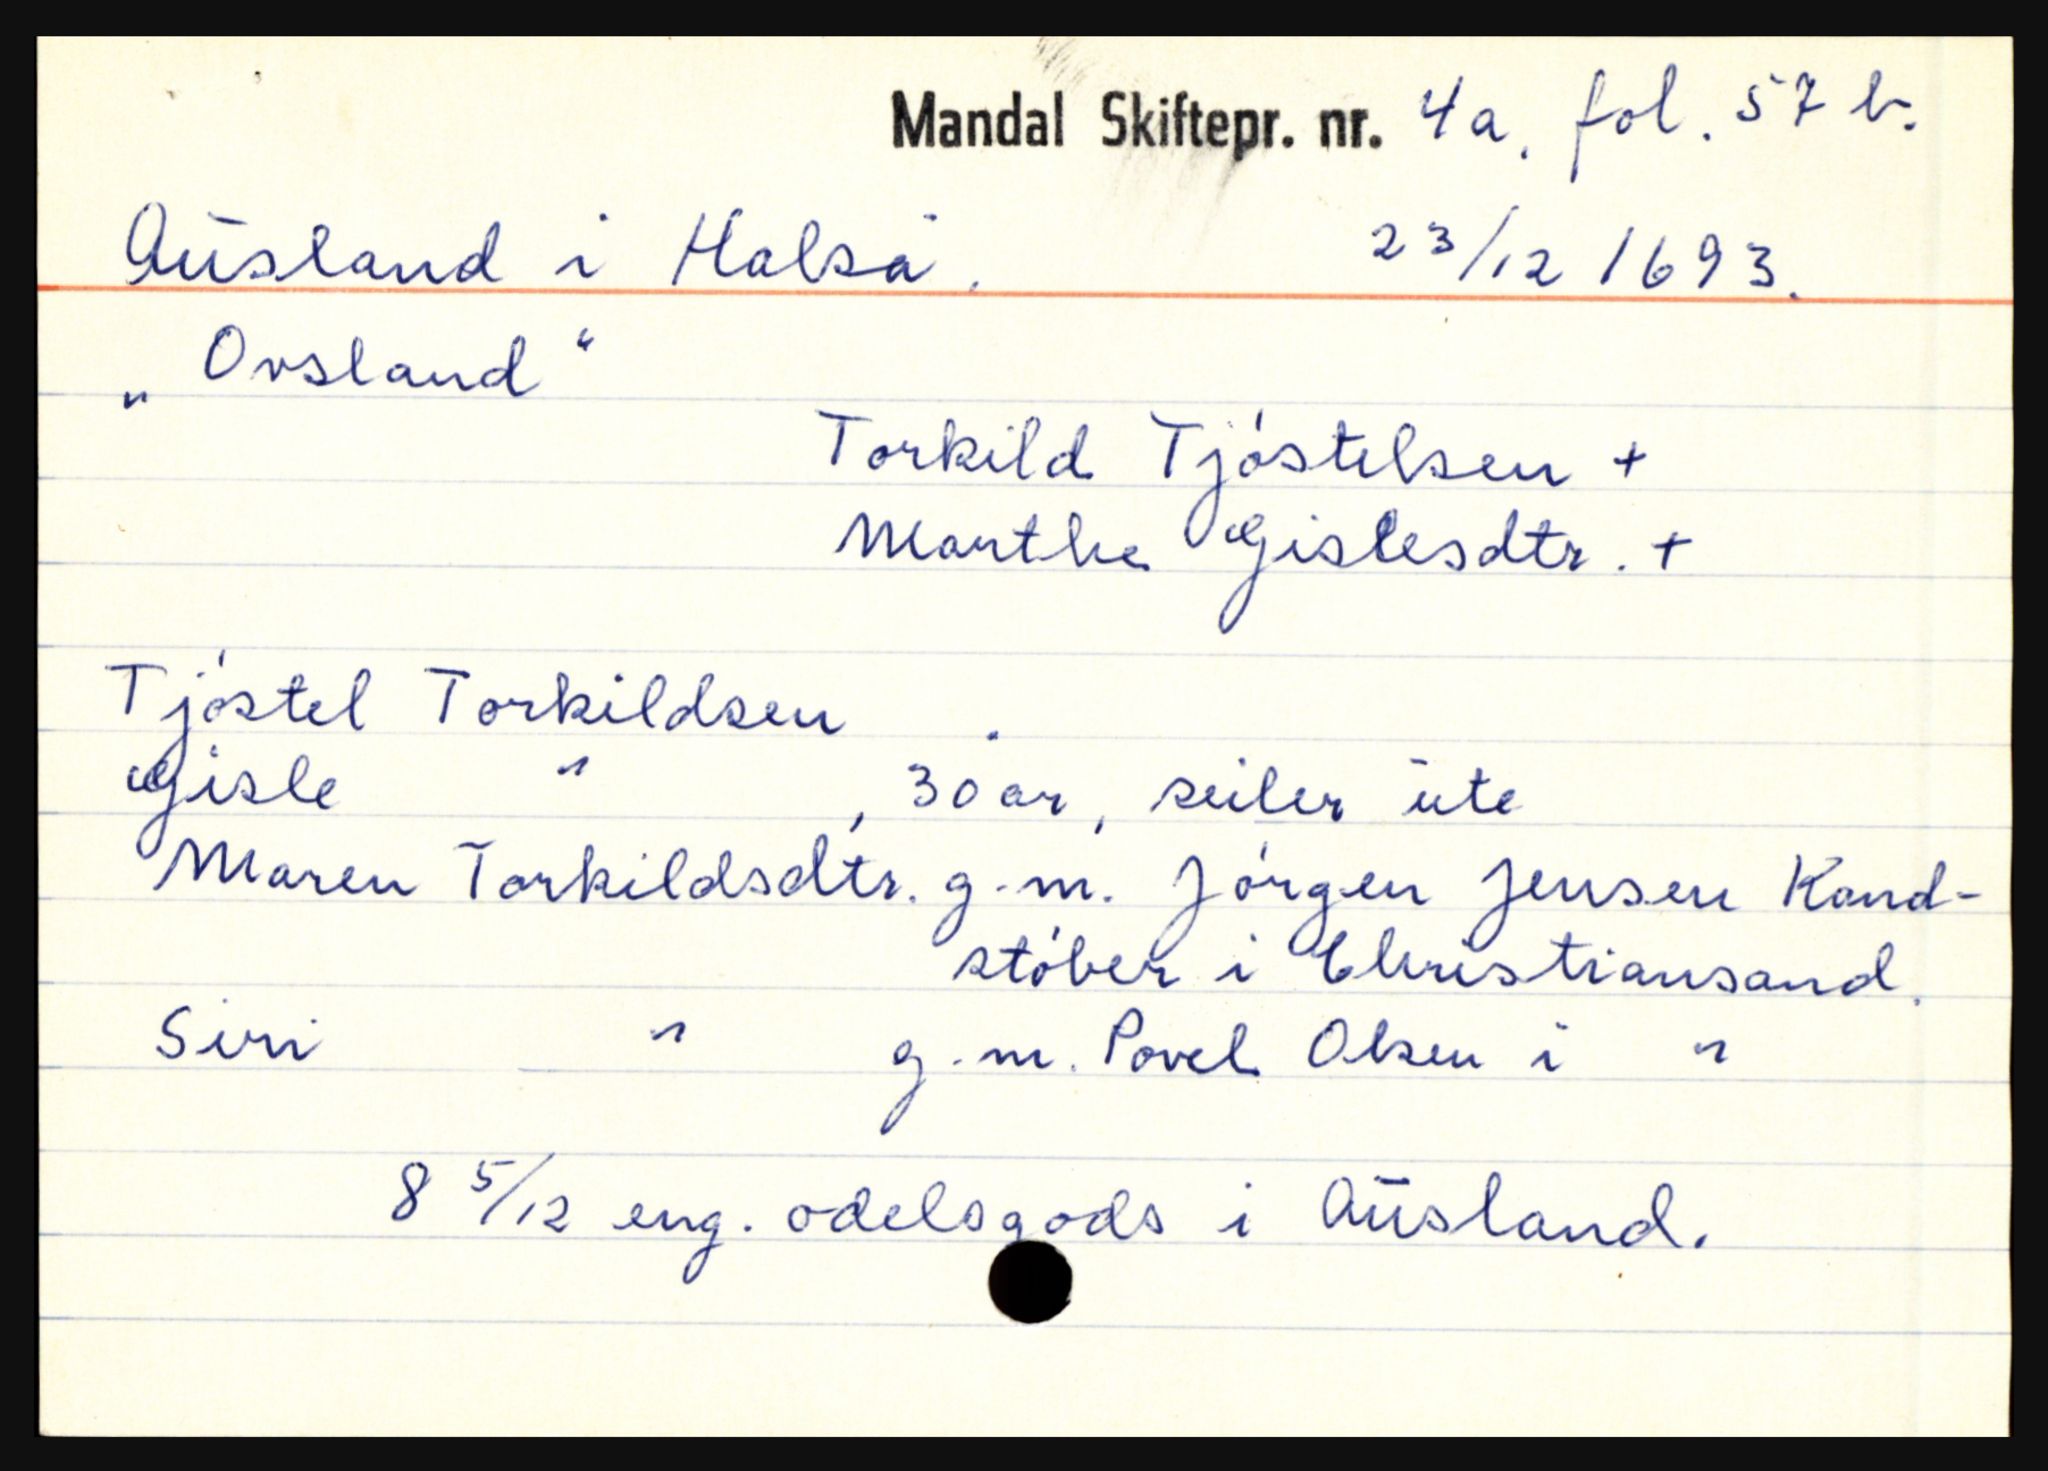 Mandal Skiftepr. nr. 4a, fol. 57 b.
Ausland i Halså. 23/12 1693.
„Ovsland“
Torkild Tjöstelsen +
Marthe Gislesdtr. +
Tjöstel Torkildsen .
Gisle " , 30 år, seiler ute
Maren Torkildsdtr. g.m. Jörgen Jensen Kand-
stöber i Christiansand.
Siri " g.m. Povel Olsen i "
8 5/12 eng. odelsgods i Ausland.